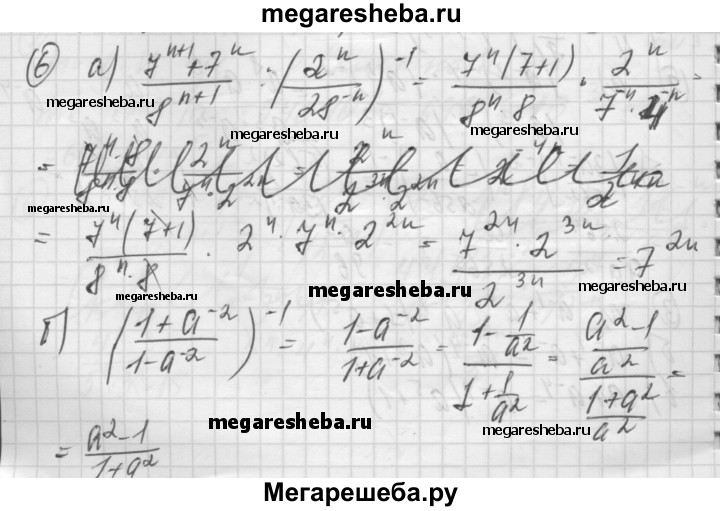 megaresheba.ru
⑥ а) (7ⁿ⁺¹+7ⁿ)/(8ⁿ⁺¹) : (2ⁿ/28⁻ⁿ)⁻¹ = (7ⁿ(7+1))/(8ⁿ·8) · 2ⁿ/(7⁻ⁿ·4⁻ⁿ) =
megaresheba.ru
megaresheba.ru
megaresheba.ru
megaresheba.ru
= (7ⁿ(7+1))/(8ⁿ·8) · 2ⁿ·7ⁿ·2²ⁿ = (7²ⁿ·2³ⁿ)/2³ⁿ = 7²ⁿ
megaresheba.ru
megaresheba.ru
megaresheba.ru
б) ((1+a⁻²)/(1-a⁻²))⁻¹ = (1-a⁻²)/(1+a⁻²) = (1-1/a²)/(1+1/a²) = ((a²-1)/a²)/((1+a²)/a²) =
megaresheba.ru
megaresheba.ru
= (a²-1)/(1+a²)
Мегарешеба.ру